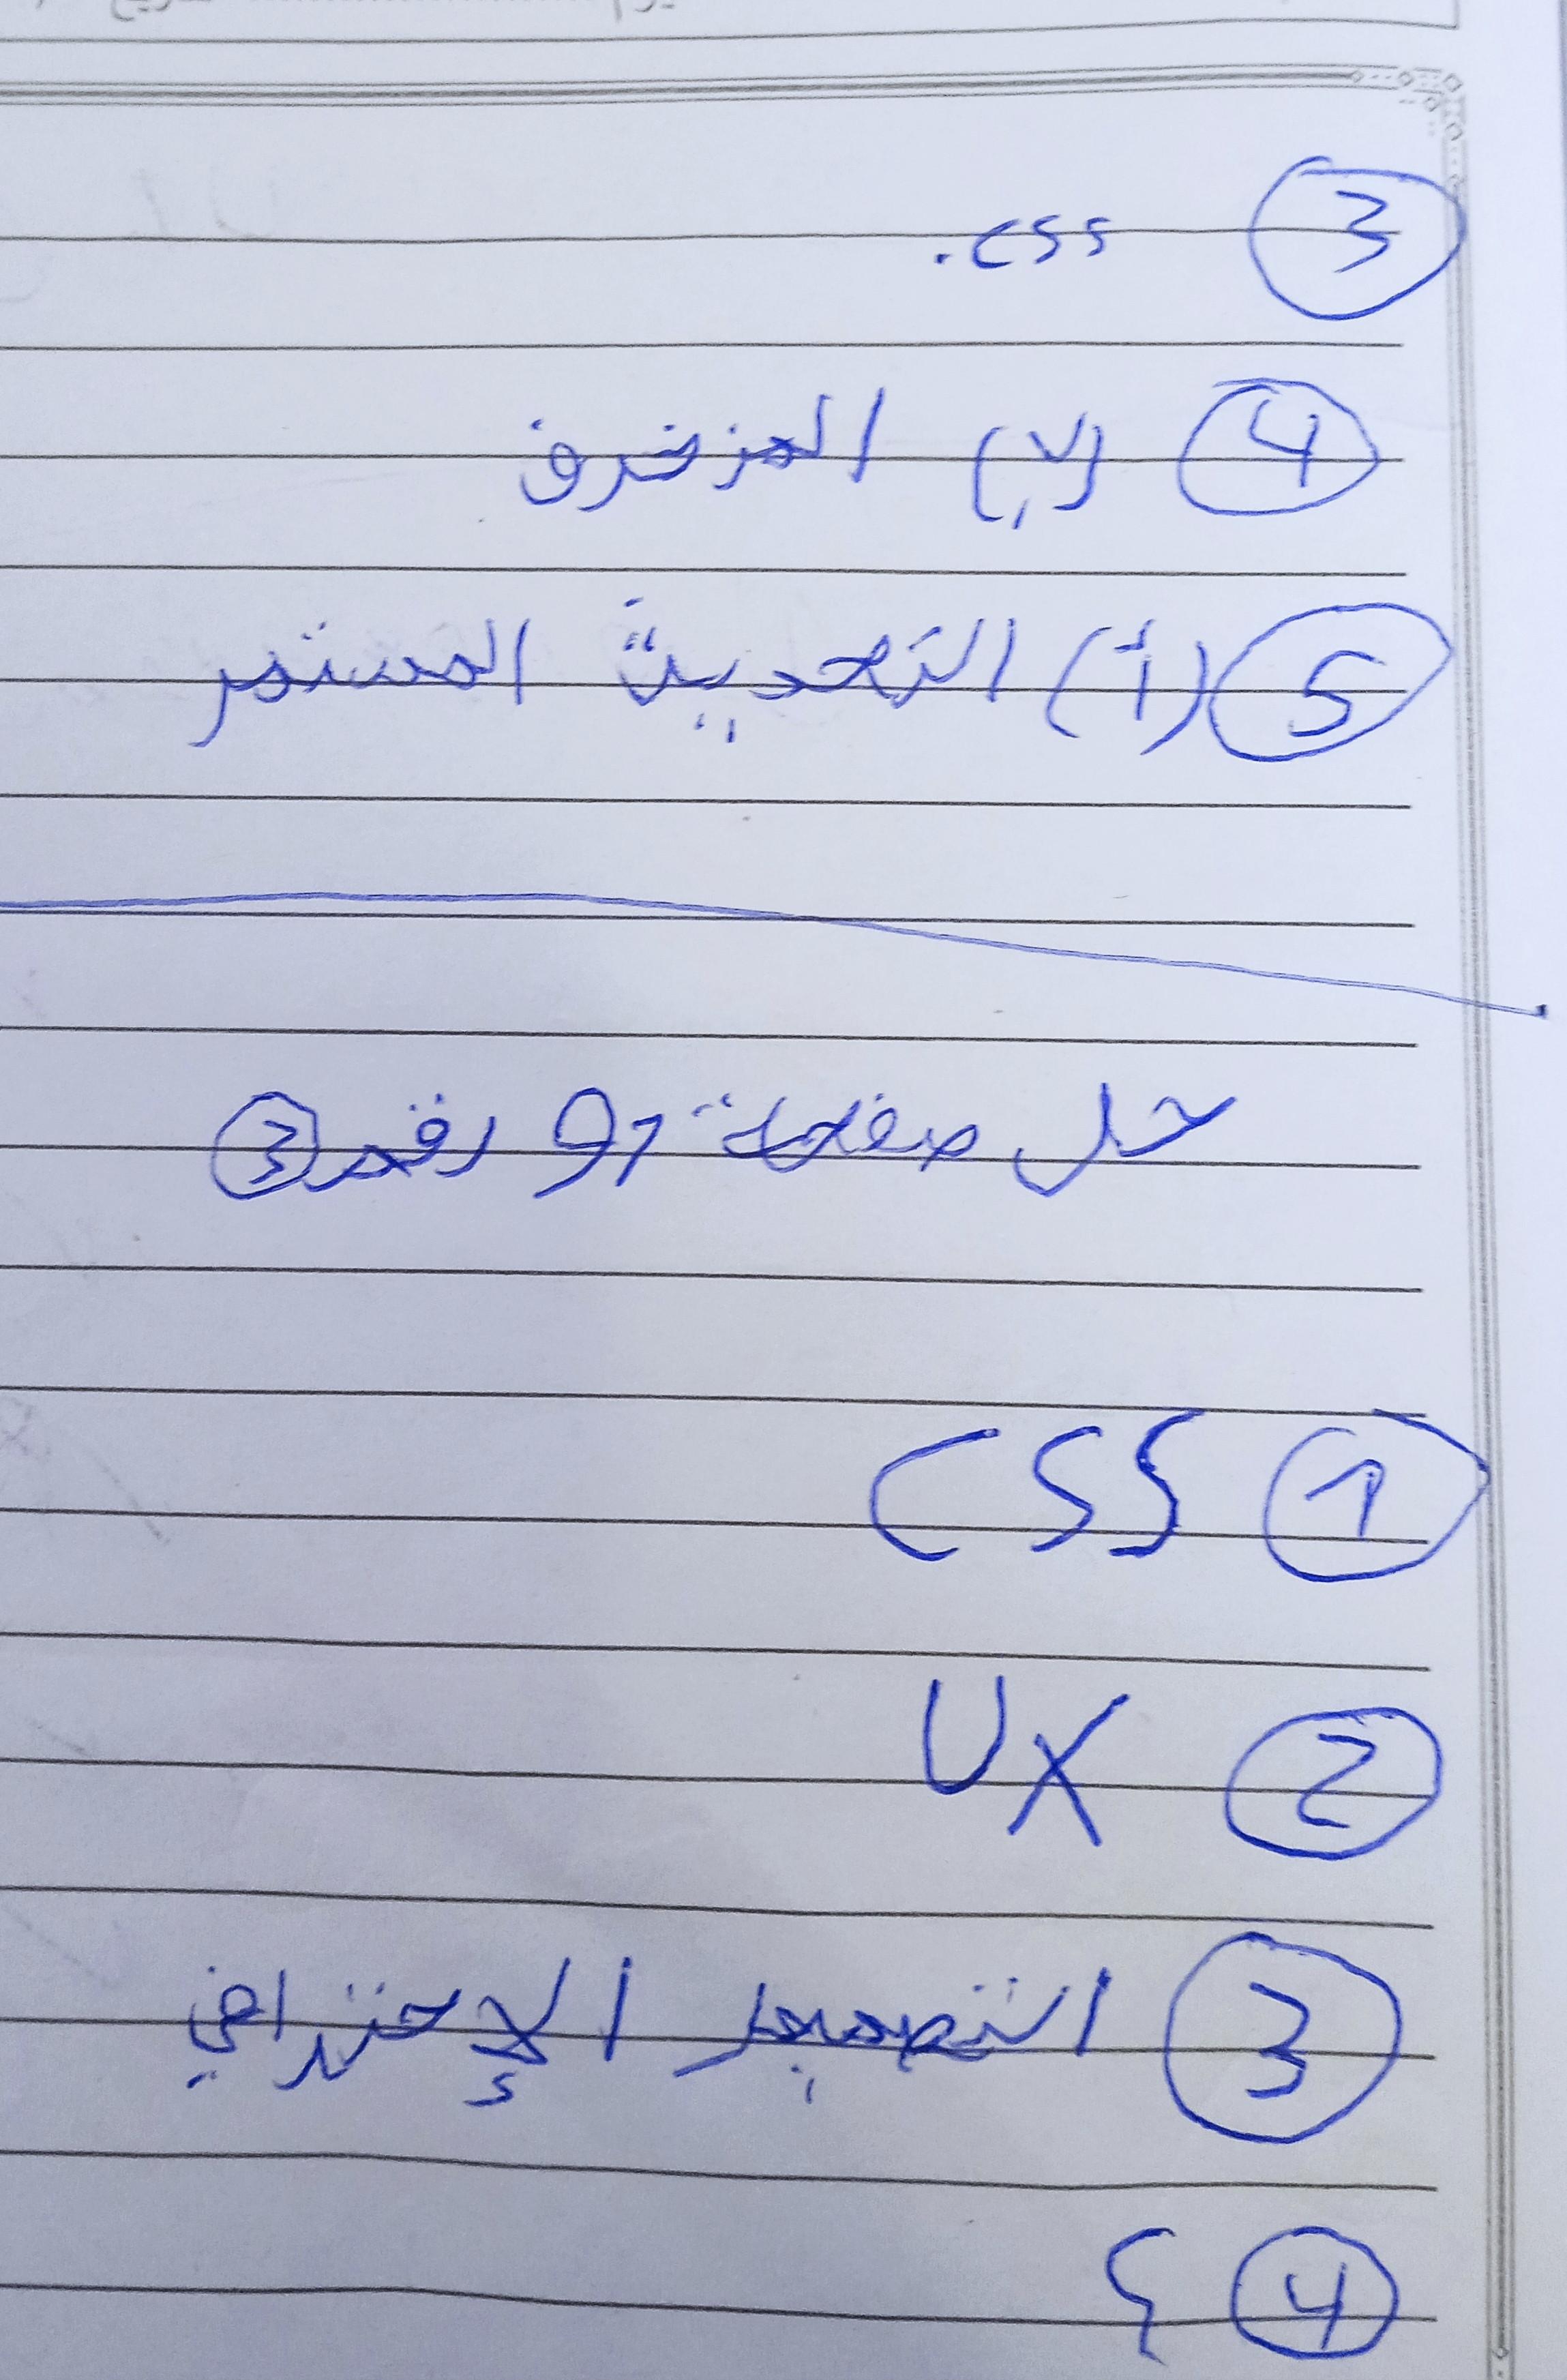 ③ .css
④ (ب) المزخرف
⑤ (أ) التحديث المستمر
حل صفحة 97 رقم ③
① CSS
② UX
③ التصميم الإحترافي
④ ؟